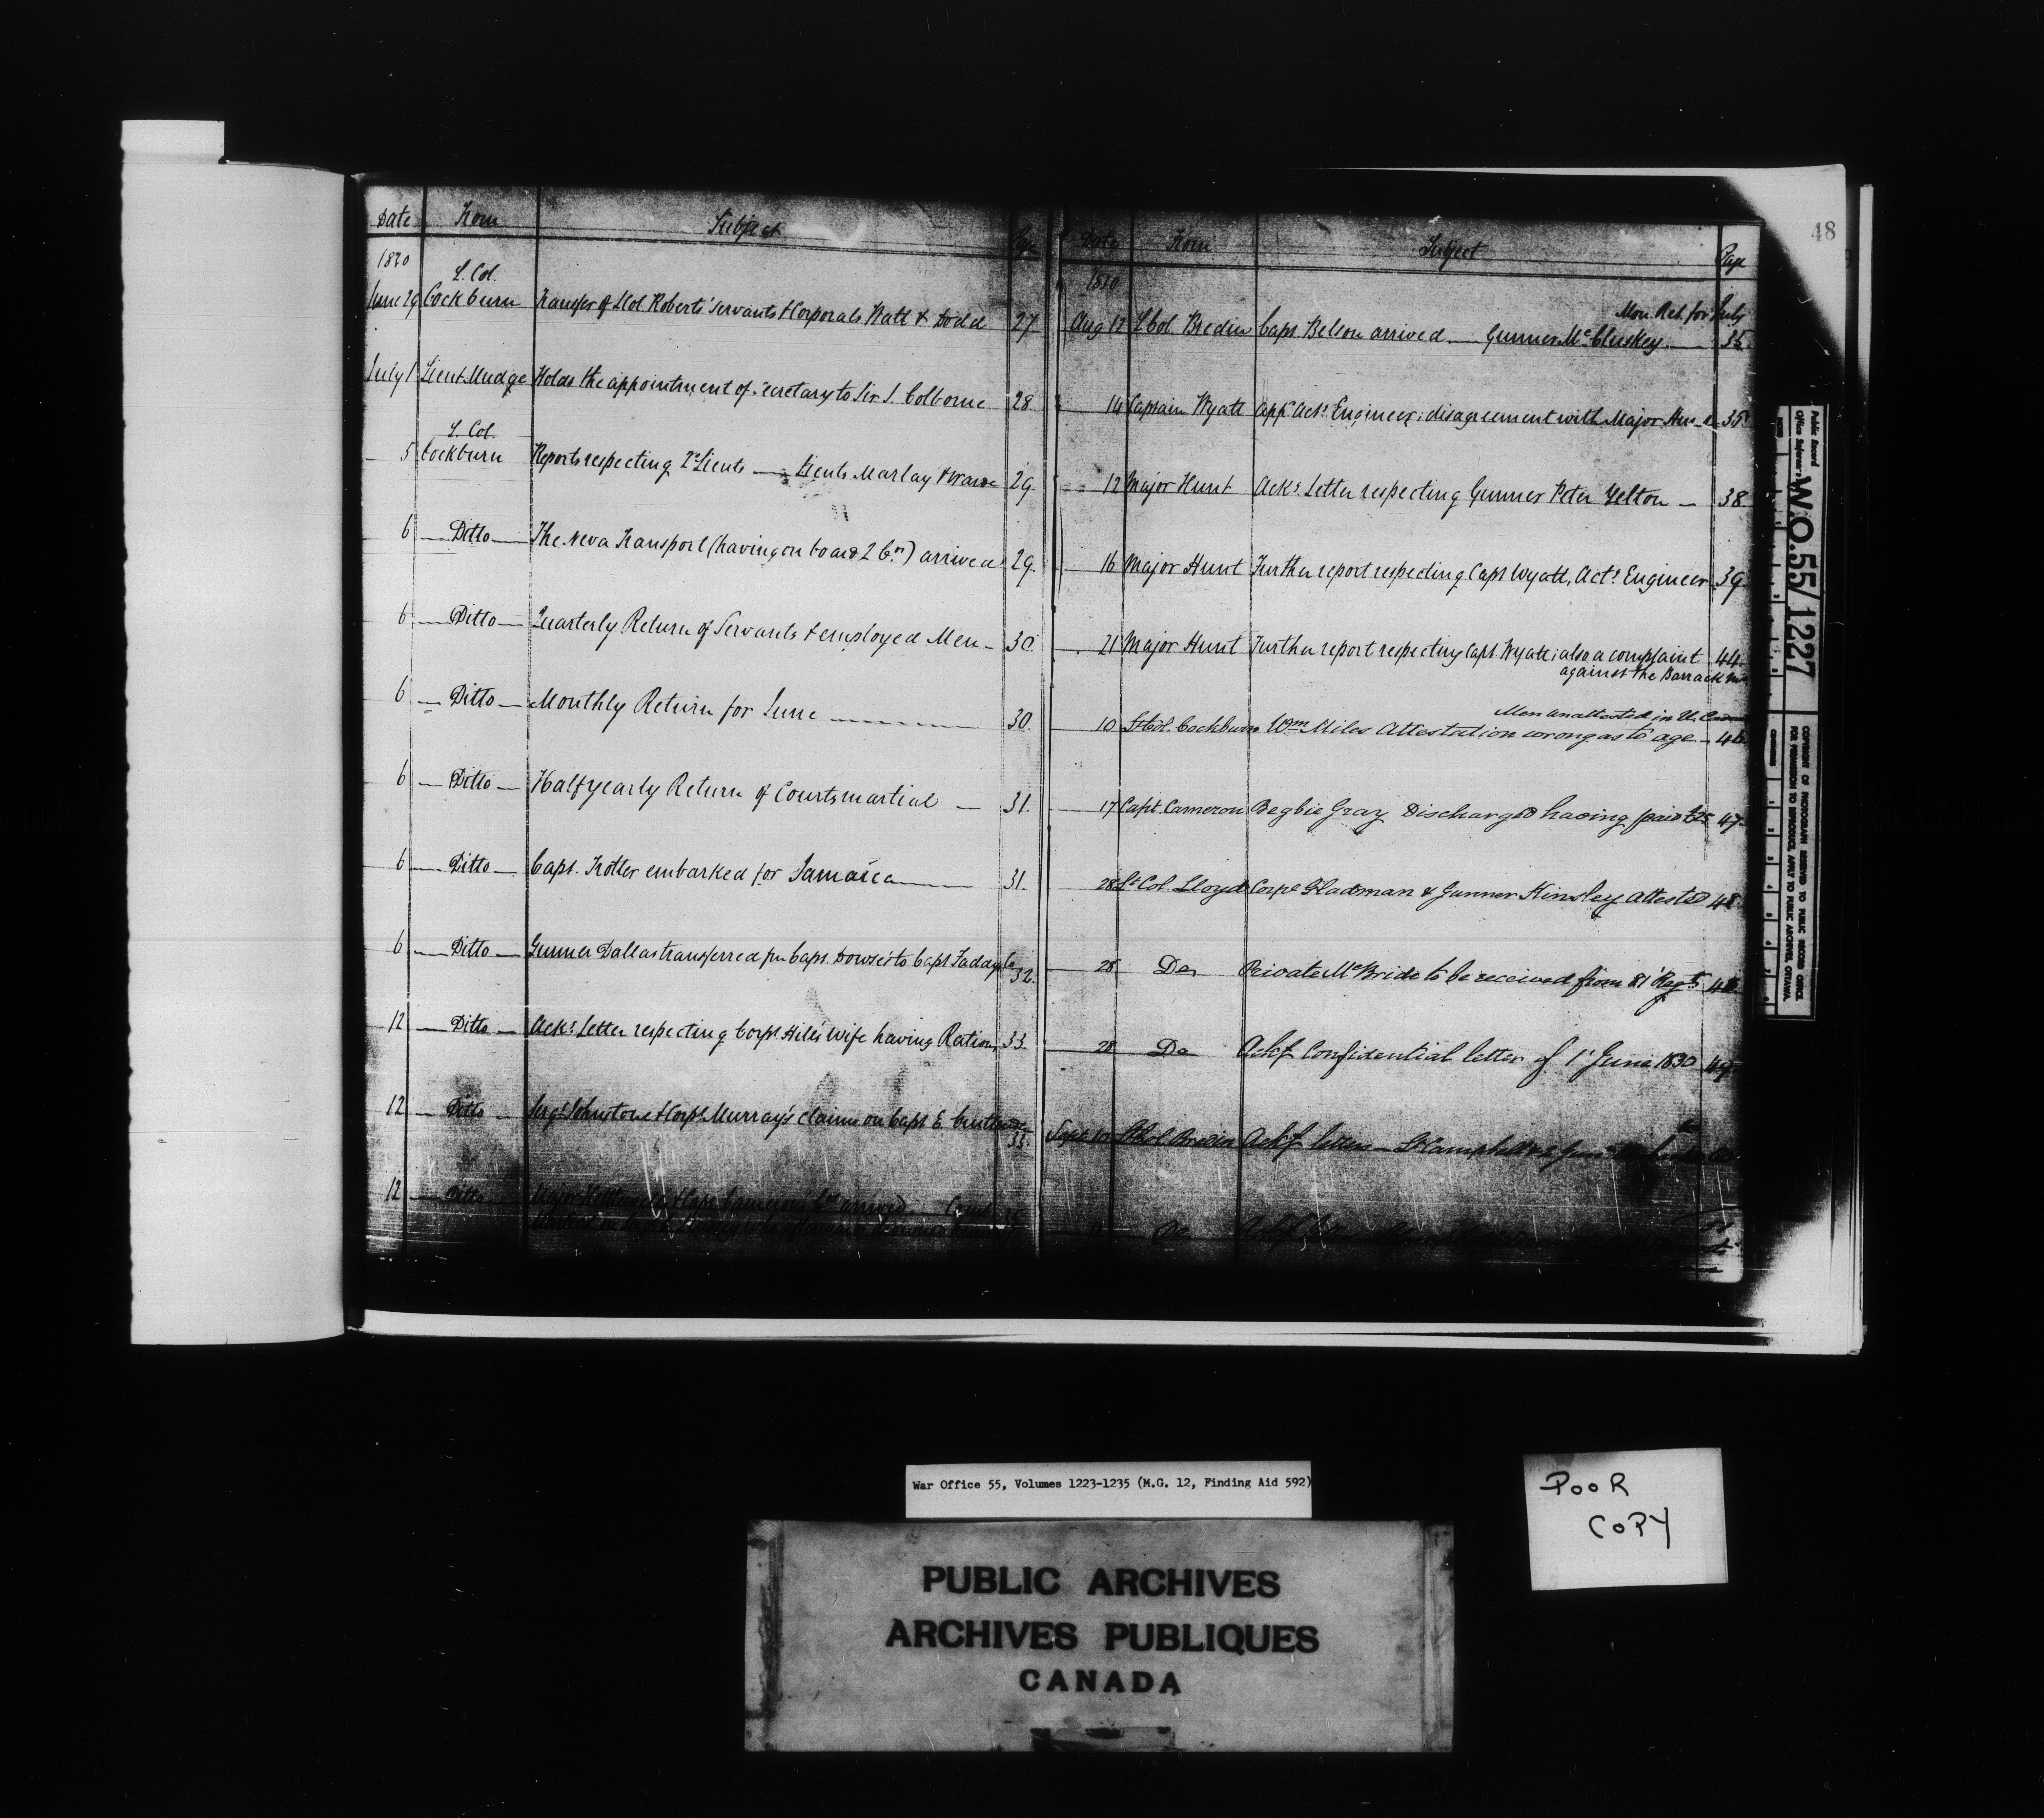 48
Date From Subject Page
1830
L. Col.
June 29 Cockburn Transfer of LCol Roberts' Servants & Corporals Watt & Dodd 27
July 1 Lieut Mudge Holds the appointment of Secretary to Sir J. Colborne 28.
L. Col.
5 Cockburn Reports respecting 2d Lieuts — Lieuts Marlay & 29
6 — Ditto — The Neva Transport (having on board 2 Cos) arrived 29.
6 — Ditto — Quarterly Return of Servants & employed Men - 30.
6 — Ditto — Monthly Return for June 30.
6 — Ditto — Half yearly Return of Courtsmartial — 31.
6 — Ditto — Capt. Trotter embarked for Jamaica 31.
6 — Ditto — Gunner Dallas transferred fm Capt. Dowse's to Capt Faddy's Co 32.
12 — Ditto — Acks Letter respecting Corpl Hill's Wife having Rations 33.
12 — Ditto — Sergt Johnstone & Corpl Murray's claims on Capt E. 33.
12 — Ditto — Major & Capt Cameron's Cos arrived
Date From Subject Page
1830
Mon. Ret. for July
Aug 12 LCol Bredin Capt. Belson arrived — Gunner McCluskey 35
14 Captain Wyatt Appt Actg Engineer; disagreement with Major Hunt 35
12 Major Hunt Acks Letter respecting Gunner Peter Yelton — 38
16 Major Hunt Further report respecting Capt Wyatt, Actg Engineer 39
21 Major Hunt Further report respecting Capt Wyatt; also a complaint 44
against the Barrack Mr
Men unattested in U. Canada
10 Lt Col. Cockburn Wm Miles Attestation wrong as to age — 46
17 Capt. Cameron Begbie Gray Discharged having paid £25 47
28 Lt Col. Lloyd Corpl Gladman & Gunner Kinsley Attested 48
28 Do Private McBride to be received from 81 Regt 48
28 Do Ackg Confidential letter of 1 June 1830 49
Sept 10 LtCol Bredin Ackg letters — Lt Campbell
Do Ackg
Public Record
Office Reference
W.O.55/1227
COPYRIGHT OF PHOTOGRAPH RESERVED TO PUBLIC RECORD OFFICE.
FOR PERMISSION TO REPRODUCE, APPLY TO PUBLIC ARCHIVES, OTTAWA.
War Office 55, Volumes 1223-1235 (M.G. 12, Finding Aid 592)
POOR
COPY
PUBLIC ARCHIVES
ARCHIVES PUBLIQUES
CANADA